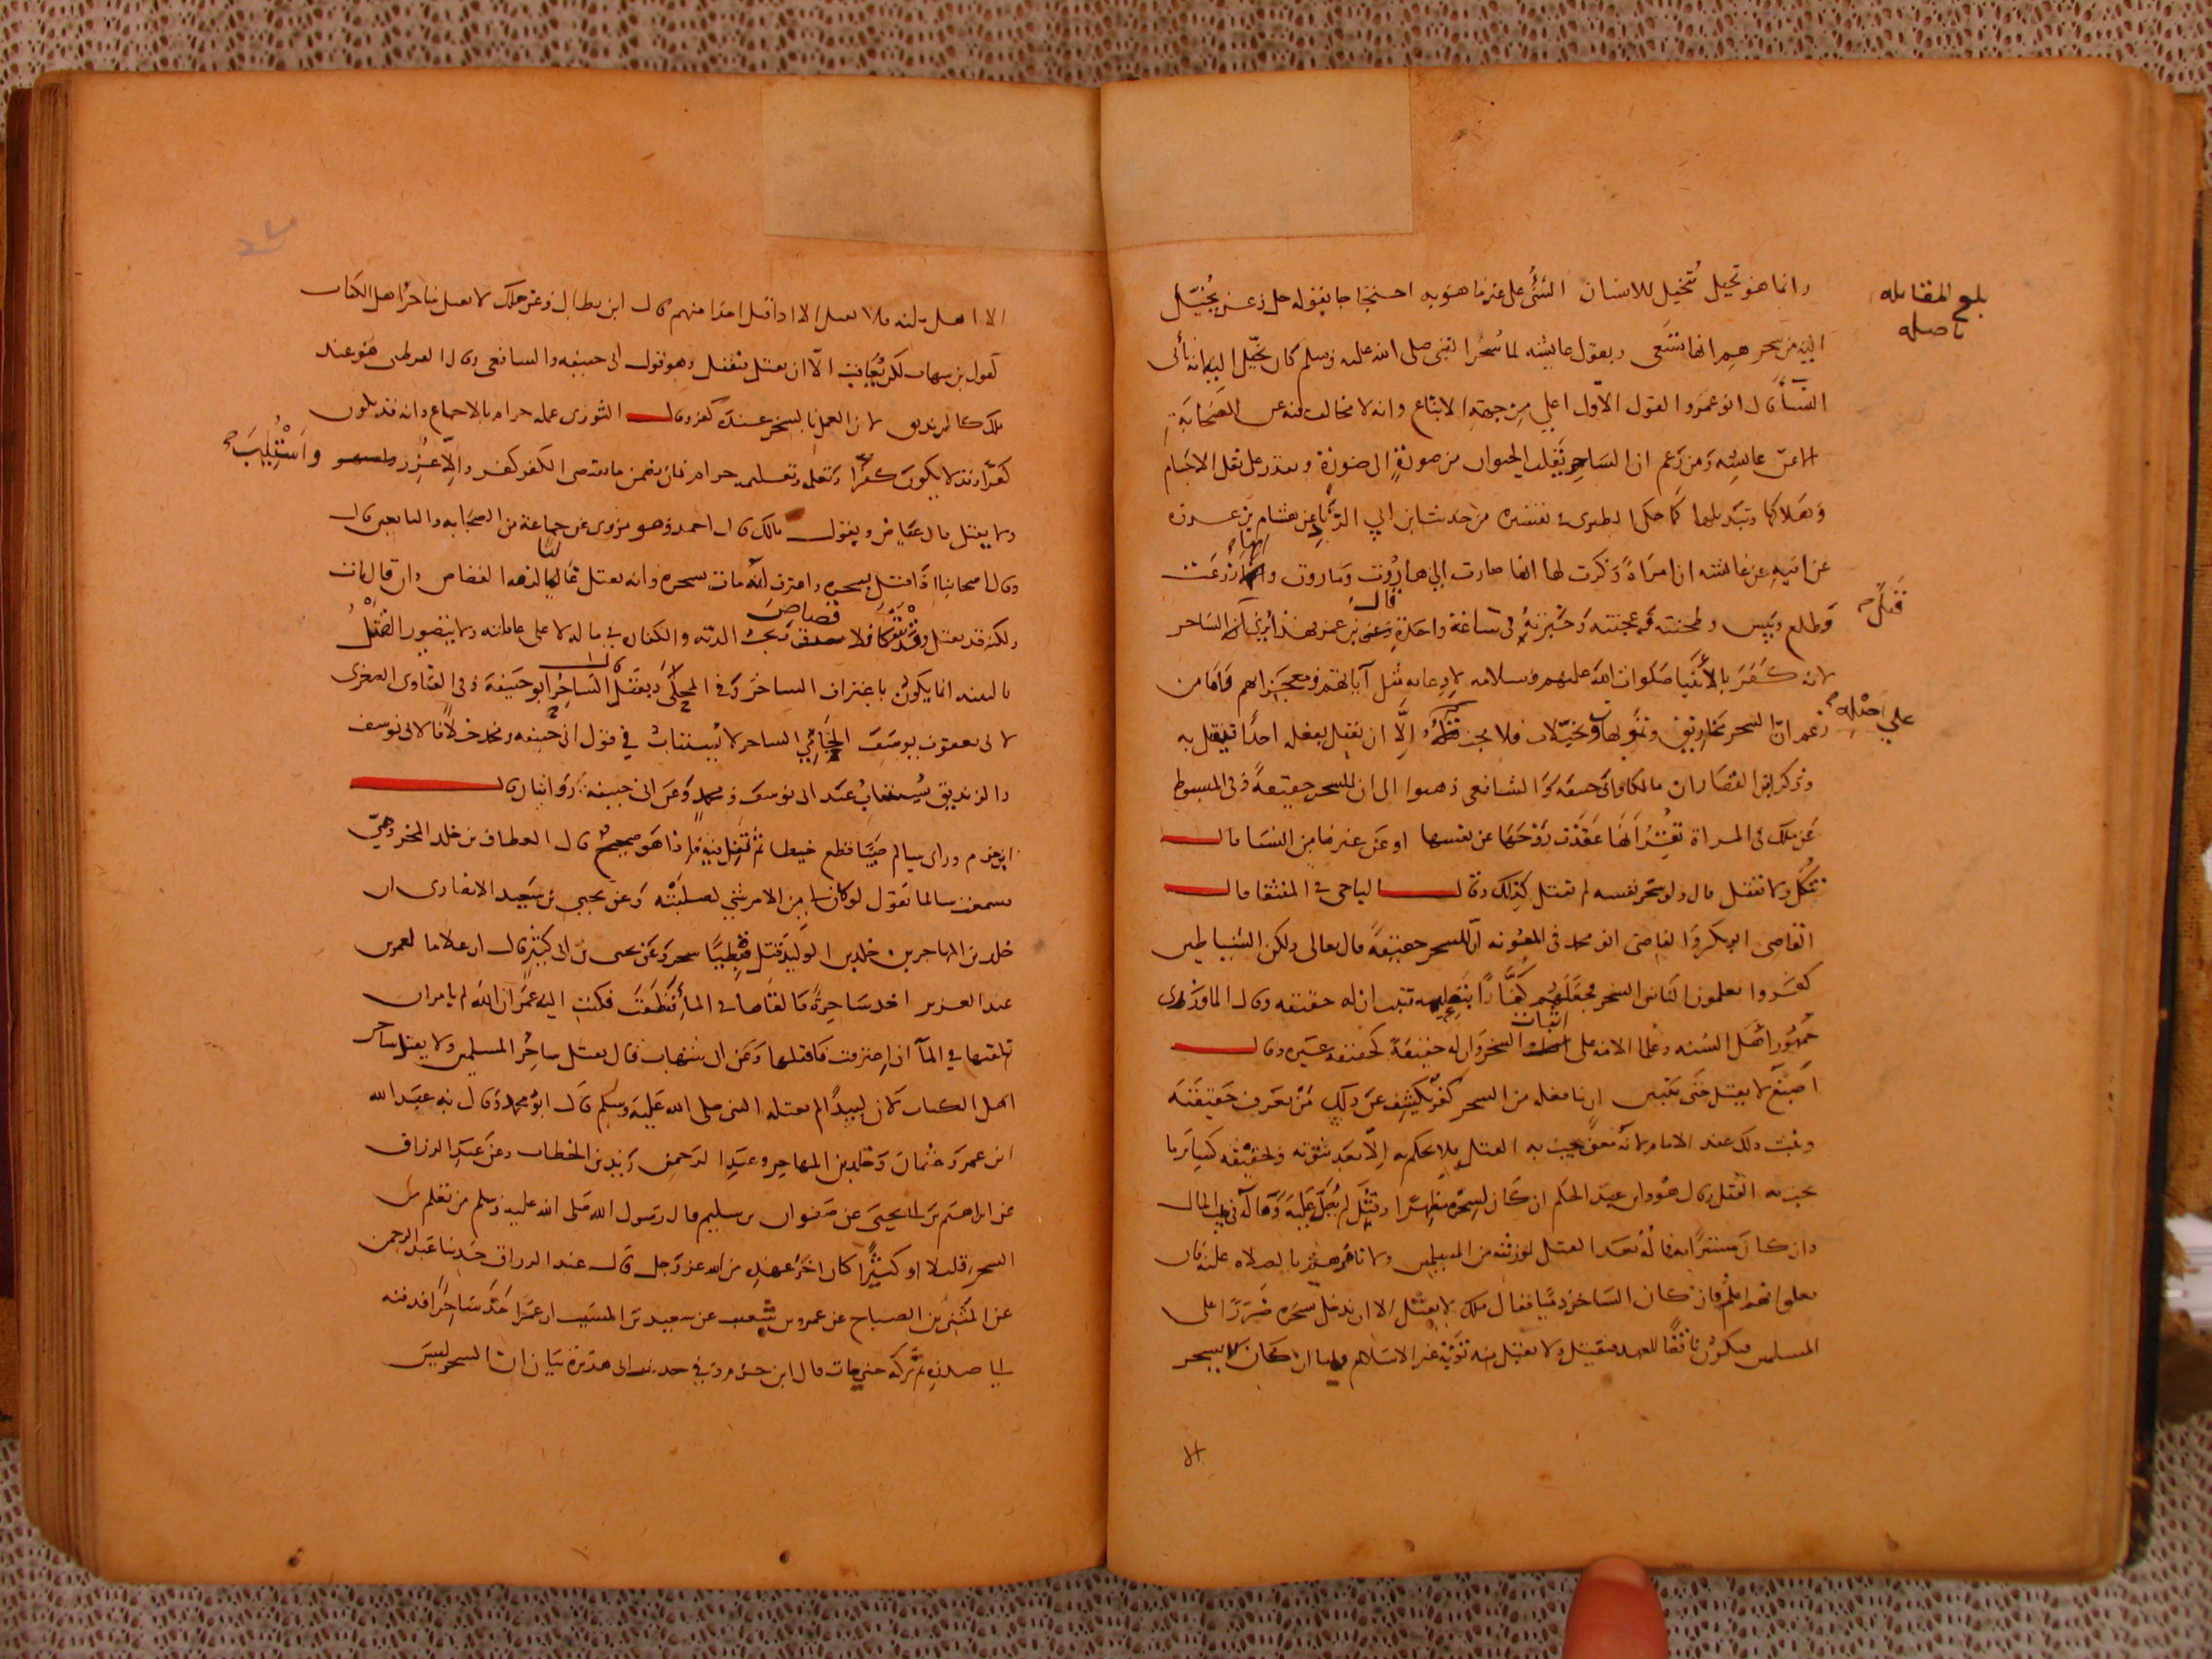 بلغ المقابلة
باصله
وانما هو تخيل تُخيل للانسان الشئ على غير ما هو به احتجاجا بقوله جل وعز يُخيّل
اليه من سحرهم انها تسعى وبقول عايشه لما سُحر النبى صلى الله عليه وسلم كان يخيّل اليه انه يأتى
النسآ قال ابو عمر والقول الاول اعلي من جهة الاتباع وانه لا مخالف له من الصحابة
الا عن عايشه ومن زعم ان الساحر يقلب الحيوان من صورة الى صورة ويقدر على نقل الاجسام
وهلاكها وتبديلها كما حكى الطبرى فى تفسيره من حديث ابن ابي الزناد عن هشام بن عروه
عن ابيه عن عايشه ان امراة ذكرت لها انها صارت الى هاروت وماروت وانها زرعت
وطلع ويبس وطحنته وعجنته وخبزته فى ساعة واحدة قال يرى ان الساحر
قتل
لانه كفر بالأنبيا صلوات الله عليهم وسلامه لادعايه مثل آياتهم ومعجزاتهم واما من
زعم ان السحر مخاريق وتمويهات وتخيّلات فلا يجب قتله إلّا ان يقتل بفعله احدًا فيقتل به
على اصله
وذكر ابن القصار ان مالكا وابى حنيفة والشافعى ذهبوا الى ان للسحر حقيقةً وفى المبسوط
عن ملك فى المراة تقر انها عقدت زوجها عن نفسها او عن غيرها من النسا قال
تنكل ولا تقتل قال ولو سحر نفسه لم يقتل كذلك وقال الباجى فى المنتقا قال
القاضى ابو بكر والقاضى ابو محمد فى المعونه ان للسحر حقيقة قال تعالى ولكن الشياطين
كفروا يعلمون الناس السحر فجعلهم كفارًا بتعليمه فثبت ان له حقيقه وقال الماوردى
جمهور اهل السنه وعلما الامه على اثبات السحر وان له حقيقة كحقيقه غيره وقال
اصبغ لا يقتل حتى يتبين ان ما فعله من السحر كفر يكشف عن ذلك من يعرف حقيقته
ويثبت ذلك عند الامام لانه معنى يجب به القتل فلا يحكم به إلّا بعد ثبوته وتحقيقه كساير ما
يجب به القتل وقال هو وابن عبد الحكم ان كان لسحره مظهرًا وقتل لم يُصلّ عليه وماله فى بيت المال
وان كان مستترًا فماله بعد القتل لورثته من المسلمين ولا نامرهم بالصلاه عليه فان
فعلوا فهم اعلم فان كان الساحر ذميًا فقال ملك لا يقتل الا ان يدخل سحره ضررًا على
المسلمين فيكون ناقضًا للعهد فيقتل ولا يقبل منه توبة غير الاسلام واما ان كان لا يسحر
الا
الا اهل ملته فلا يقتل الا اذا قتل احدا منهم قال ابن بطال وعن ملك لا يقتل ساحر اهل الكتاب
كقول ابن شهاب لكن يُعاقب الّا ان يقتل فيقتل وهو قول ابى حنيفه والشافعى وقال القرطبى هو عند
ملك كالزنديق لان العمل بالسحر عنده كفر وقال الثورى عمله حرام بالاجماع وانه قد يكون
كفرًا وقد لا يكون كفرًا وتعلمه وتعليمه حرام فان تضمن ما يقتضى الكفر كفر والّا عُزِّر واستُتيب
ولا يقتل قال عياض ويقول مالك قال احمد وهو مروى عن جماعة من الصحابه والتابعين قال
وقال اصحابنا اذا قتل بسحره واعترف انه مات بسحره وانه يقتل غالبا لزمه القصاص وان قال مات
ولكنه قد يقتل وقد لا فلا قصاص وتجب الديّه والكفاره في ماله لا على عاقلته ولا يتصور القتل
بالبينه انما يكون باعتراف الساحر وفى المحلّى قال يُقتل الساحر ابو حنيفة وفى الفتاوى الصغرى
لابى يعقوب يوسف الساحر لا يستتاب في قول ابى حنيفه ومحمد خلافا لابى يوسف
والزنديق يُستتاب عند ابى يوسف ومحمد وعن ابى حنيفة روايتان قال
ابن حزم وراى سالم صبيًّا قطع خيطا ثم تفل فيه فاذا هو صحيح قال العطاف بن خلد المخزوميّ
سمعت سالما يقول لو كان لى من الامر شئ لصلبته وعن يحيى بن سعيد الانصارى ان
خلد بن المهاجر بن خلد بن الوليد قتل قبطيًّا سحر وعن يحيى بن ابى كثير قال ان غلاما لعمر بن
عبد العزيز اخذ ساحرةً فالقاها فى المآ فطفت فكتب اليه عمر ان الله لم يامرك ان
تلقيها في المآ ان اعترفت فاقتلها وعن ابن شهاب قال يقتل ساحر المسلمين ولا يقتل ساحر
اهل الكتاب لان لبيدًا لم يقتله النبى صلى الله عليه وسلم قال ابو محمد وقال به عبد الله
ابن عمر وعثمان وخلد بن المهاجر وعبد الرحمن بن زيد بن الخطاب وعن عبد الرزاق
عن ابراهيم بن ابى يحيى عن صفوان بن سليم قال رسول الله صلى الله عليه وسلم من تعلم من
السحر قليلا او كثيرًا كان اخر عهده من الله عز وجل قال عبد الرزاق حدثنا عبد الرحمن
عن المثنى بن الصباح عن عمرو بن شعيب عن سعيد بن المسيب ان عمر اخذ ساحرًا فدفنه
الى صدره ثم تركه حتى مات قال ابن حزم وفي حديث ابى هريرة بيان ان السحر ليس